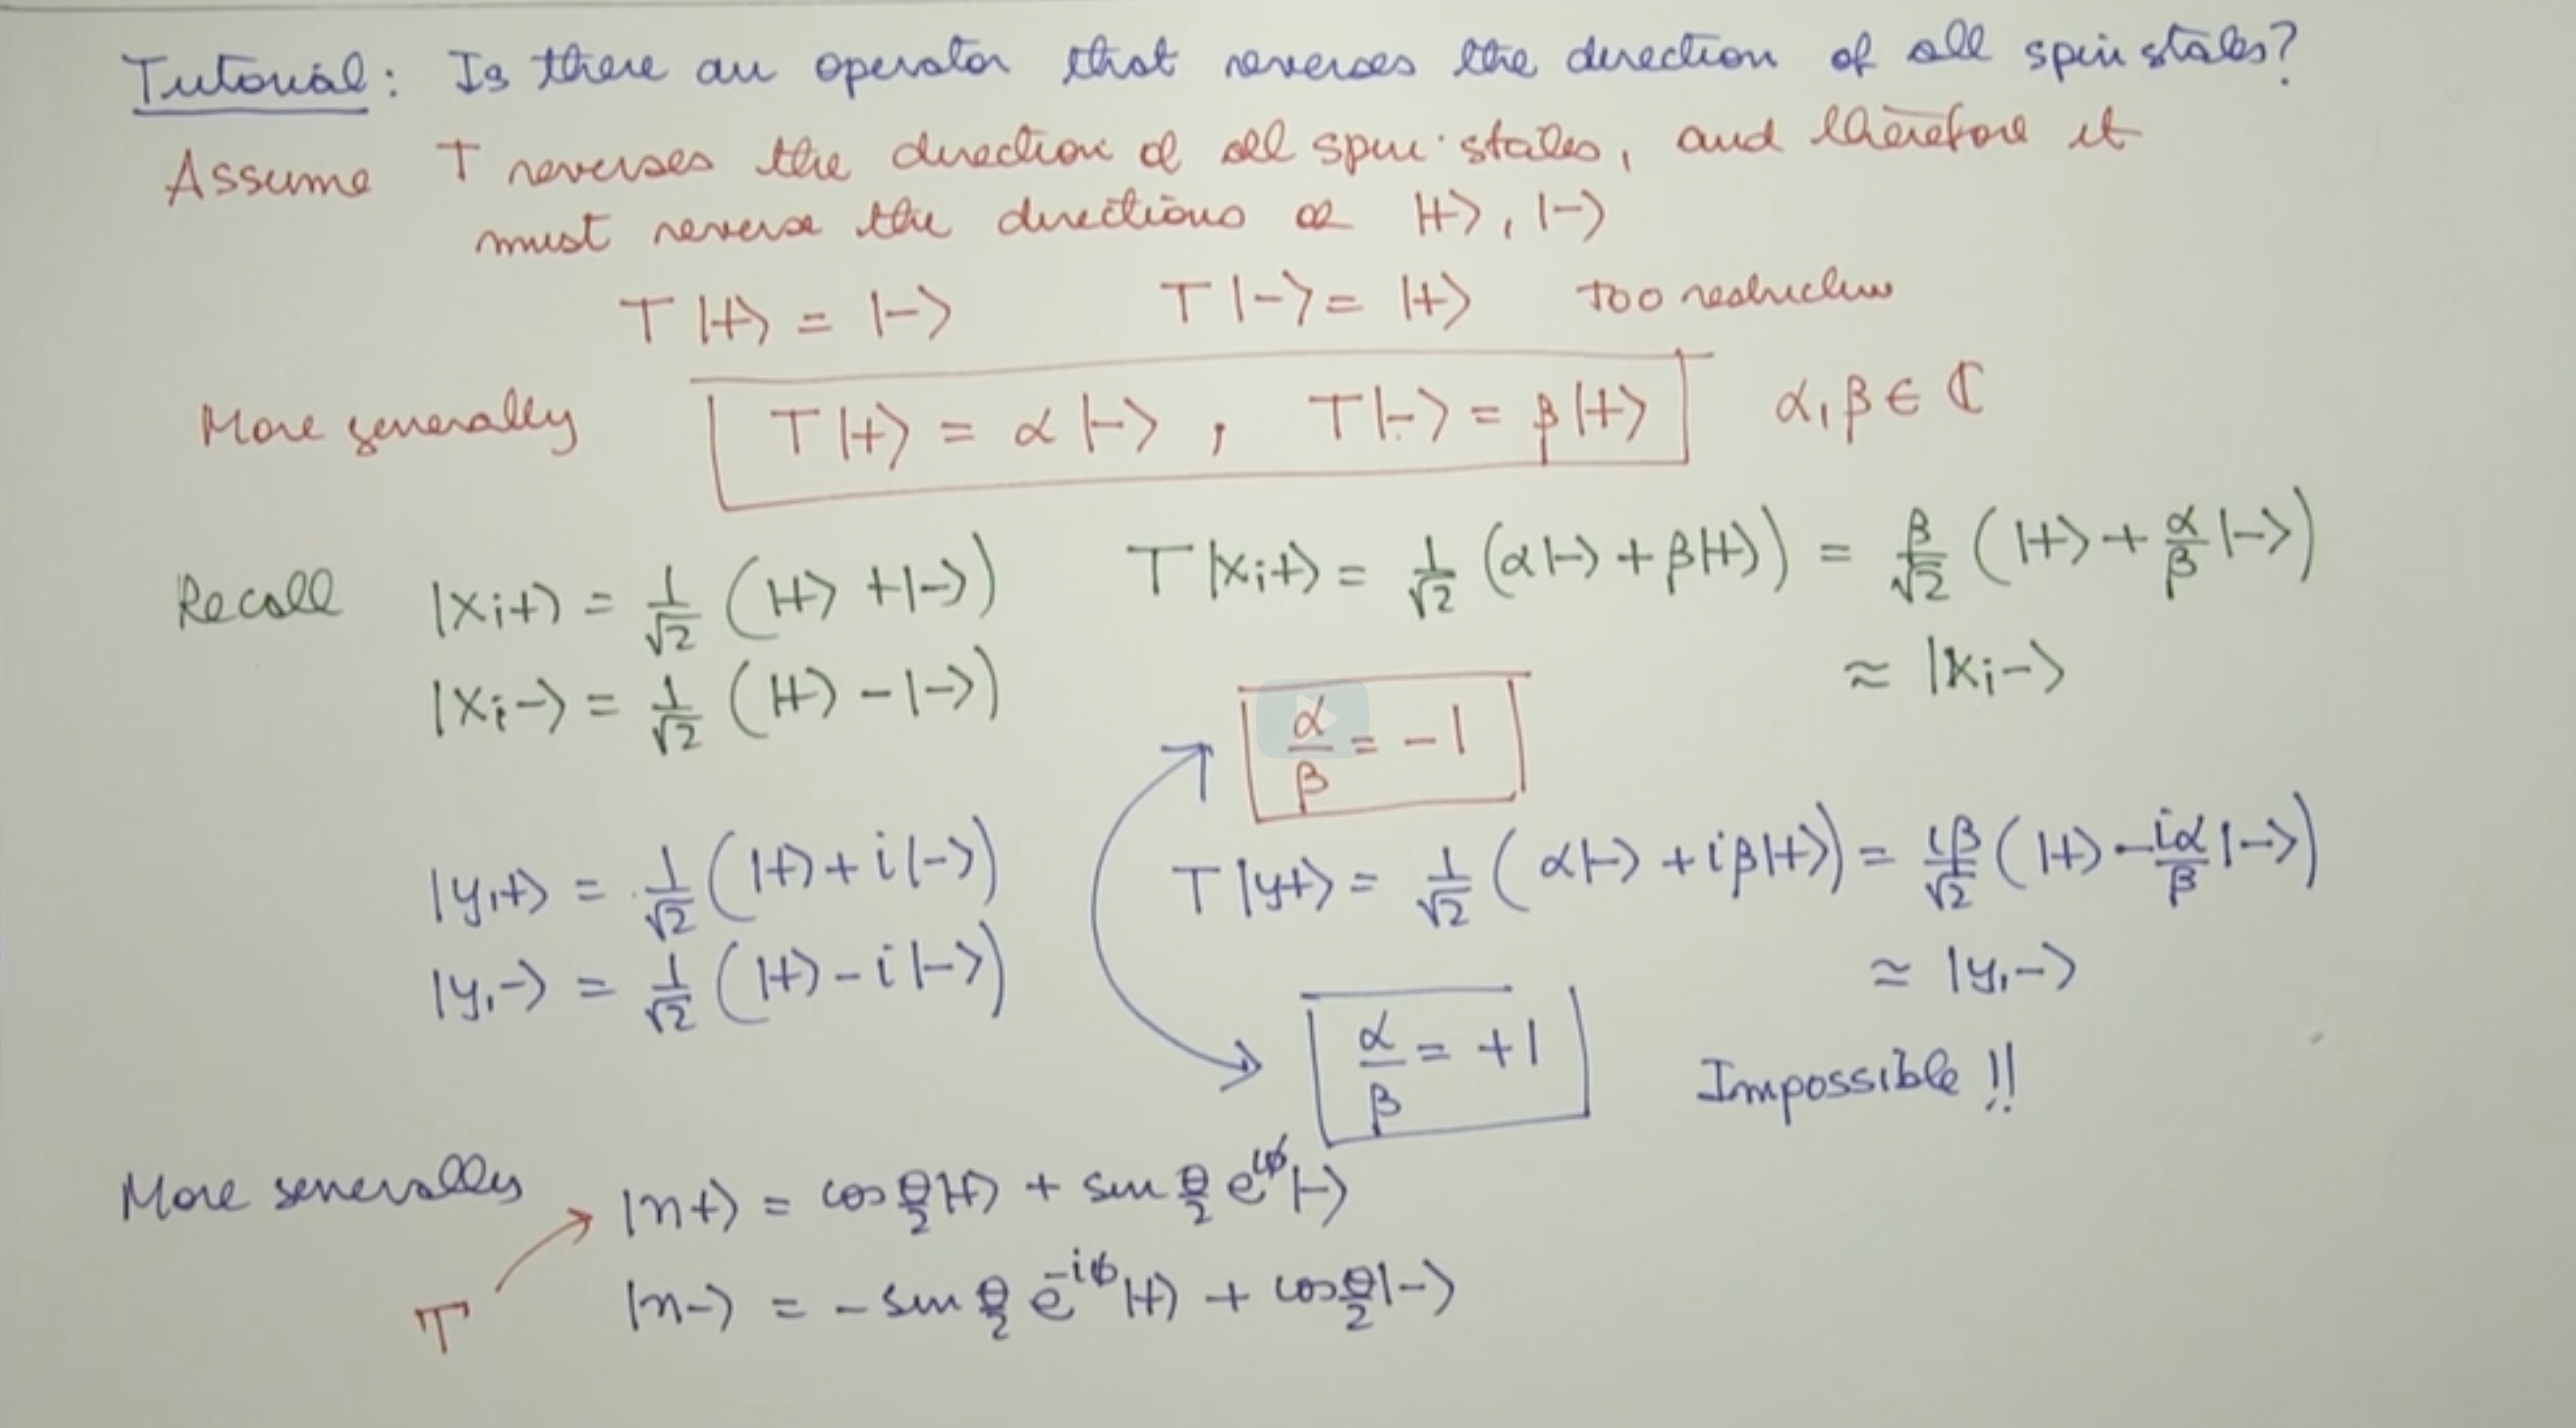 Tutorial: Is there an operator that reverses the direction of all spin states?
Assume T reverses the direction of all spin states, and therefore it
must reverse the directions of |+⟩, |−⟩
T|+⟩ = |−⟩ T|−⟩ = |+⟩ too restrictive
More generally T|+⟩ = α|−⟩ , T|−⟩ = β|+⟩ α, β ∈ ℂ
Recall |x;+⟩ = 1/√2 (|+⟩ + |−⟩) T|x;+⟩ = 1/√2 (α|−⟩ + β|+⟩) = β/√2 (|+⟩ + α/β |−⟩)
|x;−⟩ = 1/√2 (|+⟩ − |−⟩) ≈ |x;−⟩
α/β = −1
|y,+⟩ = 1/√2 (|+⟩ + i|−⟩) T|y+⟩ = 1/√2 (α|−⟩ + iβ|+⟩) = iβ/√2 (|+⟩ − iα/β |−⟩)
|y,−⟩ = 1/√2 (|+⟩ − i|−⟩) ≈ |y,−⟩
α/β = +1 Impossible !!
More generally |n+⟩ = cos θ/2 |+⟩ + sin θ/2 e^{iϕ} |−⟩
T |n−⟩ = − sin θ/2 e^{−iϕ} |+⟩ + cos θ/2 |−⟩